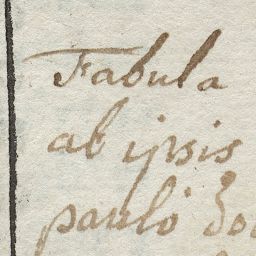 Fabula
ab ipsis
paulò